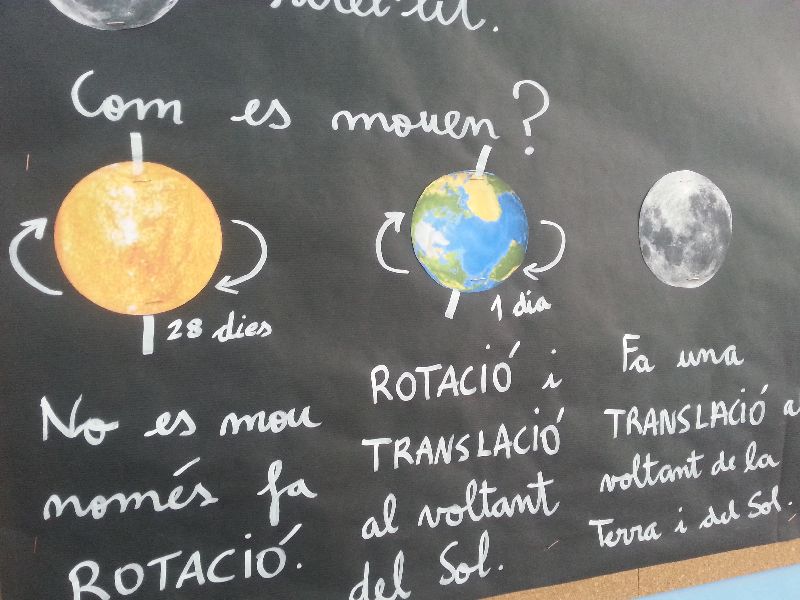 satèl·lit.
Com es mouen?
28 dies
1 dia
No es mou
només fa
ROTACIÓ.
ROTACIÓ i
TRANSLACIÓ
al voltant
del Sol.
Fa una
TRANSLACIÓ al
voltant de la
Terra i del Sol.